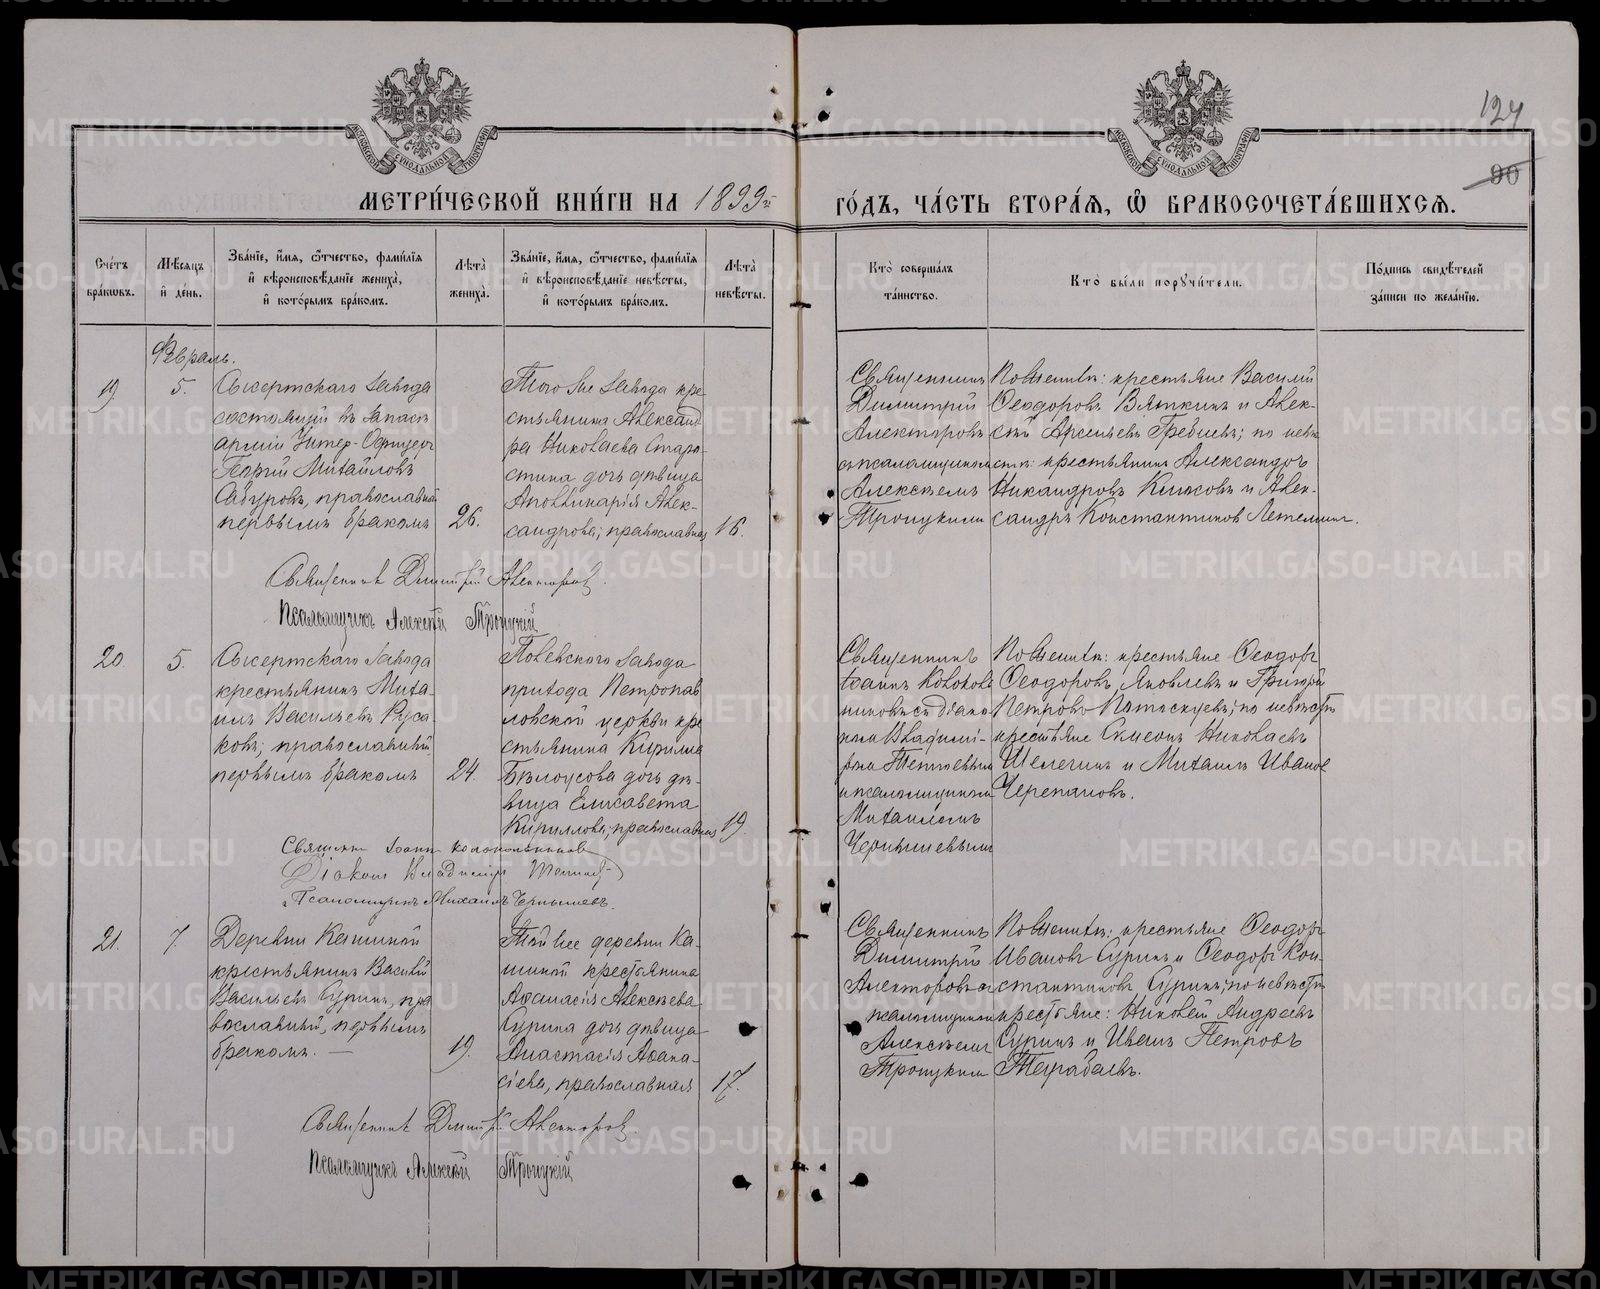 124
90
МЕТРИ́ЧЕСКОЙ КНИ́ГИ НА 1899й
ГО́ДЪ, ЧА́СТЬ ВТОРА́Я, Ѽ БРАКОСОЧЕТА́ВШИХСЯ.
МОСКОВСКОЙ СѴНОДАЛЬНОЙ ТИПОГРАФІИ
МОСКОВСКОЙ СѴНОДАЛЬНОЙ ТИПОГРАФІИ
Сче́тъ
бра́ковъ.
Мѣ́сяцъ
и҆ де́нь.
Зва́нїе, и҆́мя, ѻ҆́тчество, фами́лїя
и҆ вѣроисповѣ́данїе жениха̀,
и҆ кото́рымъ бра́комъ.
Лѣ́та̀
жениха̀.
Зва́нїе, и҆́мя, ѻ҆́тчество, фами́лїя
и҆ вѣроисповѣ́данїе невѣ́сты,
и҆ кото́рымъ бра́комъ.
Лѣ́та̀
невѣ́сты.
Кто̀ соверша́лъ
та́инство.
Кто̀ бы́ли порꙋчи́тели.
По́дпись свидѣ́телей
за́писи по жела́нїю.
Февраль.
19
5.
Сысертскаго завода
состоящій въ запасѣ
арміи Унтер-Офицеръ
Георгій Михайловъ
Сабуровъ, православный
первымъ бракомъ
26.
Того же завода кре
стьянина Александ
ра Николаева Старо-
стина дочь дѣвица
Аполлинарія Алек-
сандрова, православная
16.
Священникъ
Димитрій
Алекторовъ
съ псаломщикомъ
Алексѣемъ
Троицкимъ
По женихѣ: крестьяне Василій
Ѳеодоровъ Вяткинъ и Алек-
сѣй Арсеньевъ Гребневъ; по невѣ
стѣ: крестьянинъ Александръ
Никандровъ и Алек-
сандръ Константиновъ Летемин.
Священникъ Димитрій Алекторовъ.
Псаломщикъ Алексѣй Троицкій
20
5.
Сысертскаго завода
крестьянинъ Миха-
илъ Васильевъ Руса-
ковъ, православный
первымъ бракомъ
24.
Полевского завода
прихода Петропав
ловской церкви кре
стьянина Кирилла
Бѣлоусова дочь дѣ-
вица Елисавета
Кириллова, православная
19.
Священникъ
Іоаннъ Колоколь
никовъ съ діако
номъ Владимі-
ромъ
и псаломщикомъ
Михаиломъ
Чернышевымъ
По женихѣ: крестьяне Ѳеодоръ
Ѳеодоровъ Яковлевъ и Григорій
Петровъ; по невѣстѣ
крестьяне Симеонъ Николаевъ
Шелегинъ и Михаилъ Иванов
Черепановъ.
Священ. Іоаннъ Колокольников
Діаконъ Владиміръ
Псаломщикъ Михаилъ Чернышевъ.
21.
7
Деревни Кашиной
крестьянинъ Василій
Васильевъ Суринъ, пра
вославный, первымъ
бракомъ. —
19.
Той же деревни Ка-
шиной крестьянина
Аѳанасія Алексѣева
Сурина дочь дѣвица
Анастасія Аѳана-
сіева, православная
17.
Священникъ
Димитрій
Алекторовъ съ
псаломщикомъ
Алексѣемъ
Троицкимъ
По женихѣ: крестьяне Ѳеодоръ
Ивановъ Суринъ и Ѳеодоръ Кон-
стантиновъ Суринъ; по невѣстѣ
крестьяне: Николай Андреевъ
Суринъ и Иванъ Петровъ
Священникъ Димитрій Алекторовъ.
Псаломщикъ Алексѣй Троицкій
METRIKI.GASO-URAL.RU